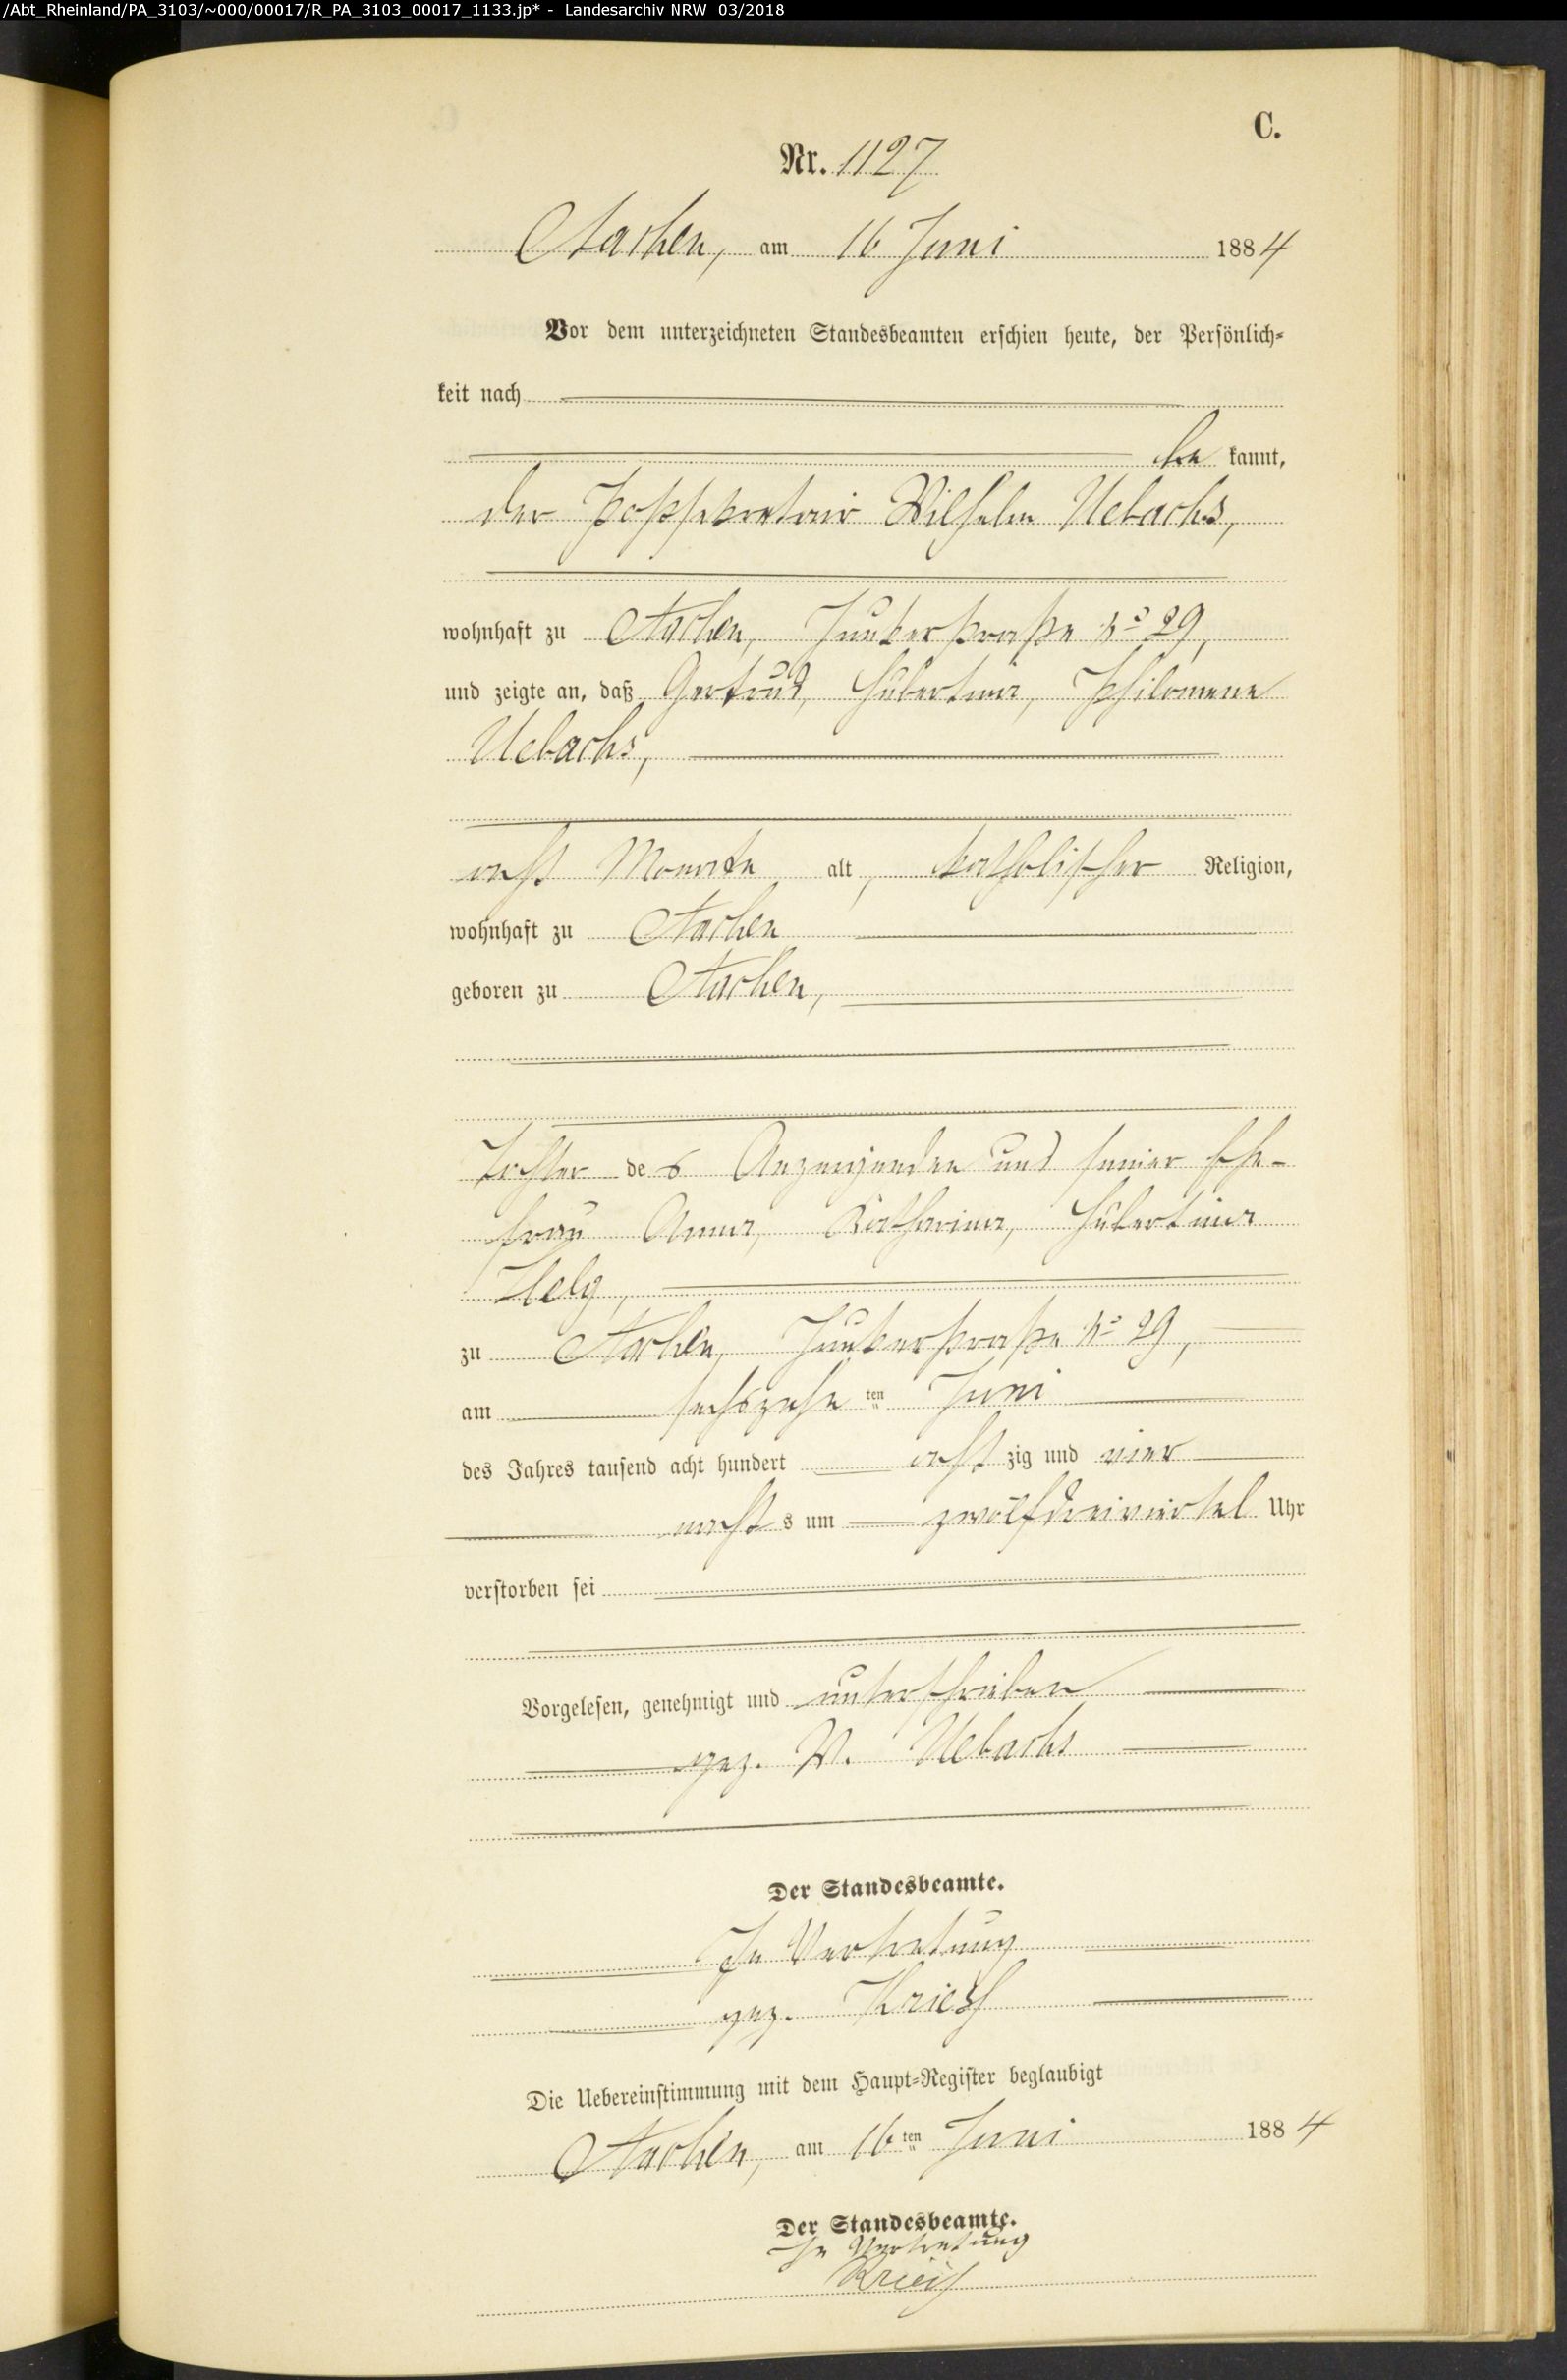 /Abt_Rheinland/PA_3103/~000/00017/R_PA_3103_00017_1133.jp* - Landesarchiv NRW 03/2018
C.
Nr. 1127
Aachen, am 16 Juni 1884
Vor dem unterzeichneten Standesbeamten erschien heute, der Persönlich-
keit nach
be kannt,
der Postsekretair Wilhelm Uebachs,
wohnhaft zu Aachen, Junkerstraße No 29,
und zeigte an, daß Gertrud, Hubertina, Philomene
Uebachs,
acht Monate alt, katholischer Religion,
wohnhaft zu Aachen
geboren zu Aachen,
Tochter des Anzeigenden und seiner Ehe-
frau Anna, Katharina, Hubertina
zu Aachen, Junkerstraße No 29,
am sechszehn ten Juni
des Jahres tausend acht hundert acht zig und vier
nacht s um zwölfdreiviertel Uhr
verstorben sei
Vorgelesen, genehmigt und unterschrieben
gez. W. Uebachs
Der Standesbeamte.
In Vertretung
gez.
Die Uebereinstimmung mit dem Haupt-Register beglaubigt
Aachen, am 16ten Juni 1884
Der Standesbeamte.
In Vertretung